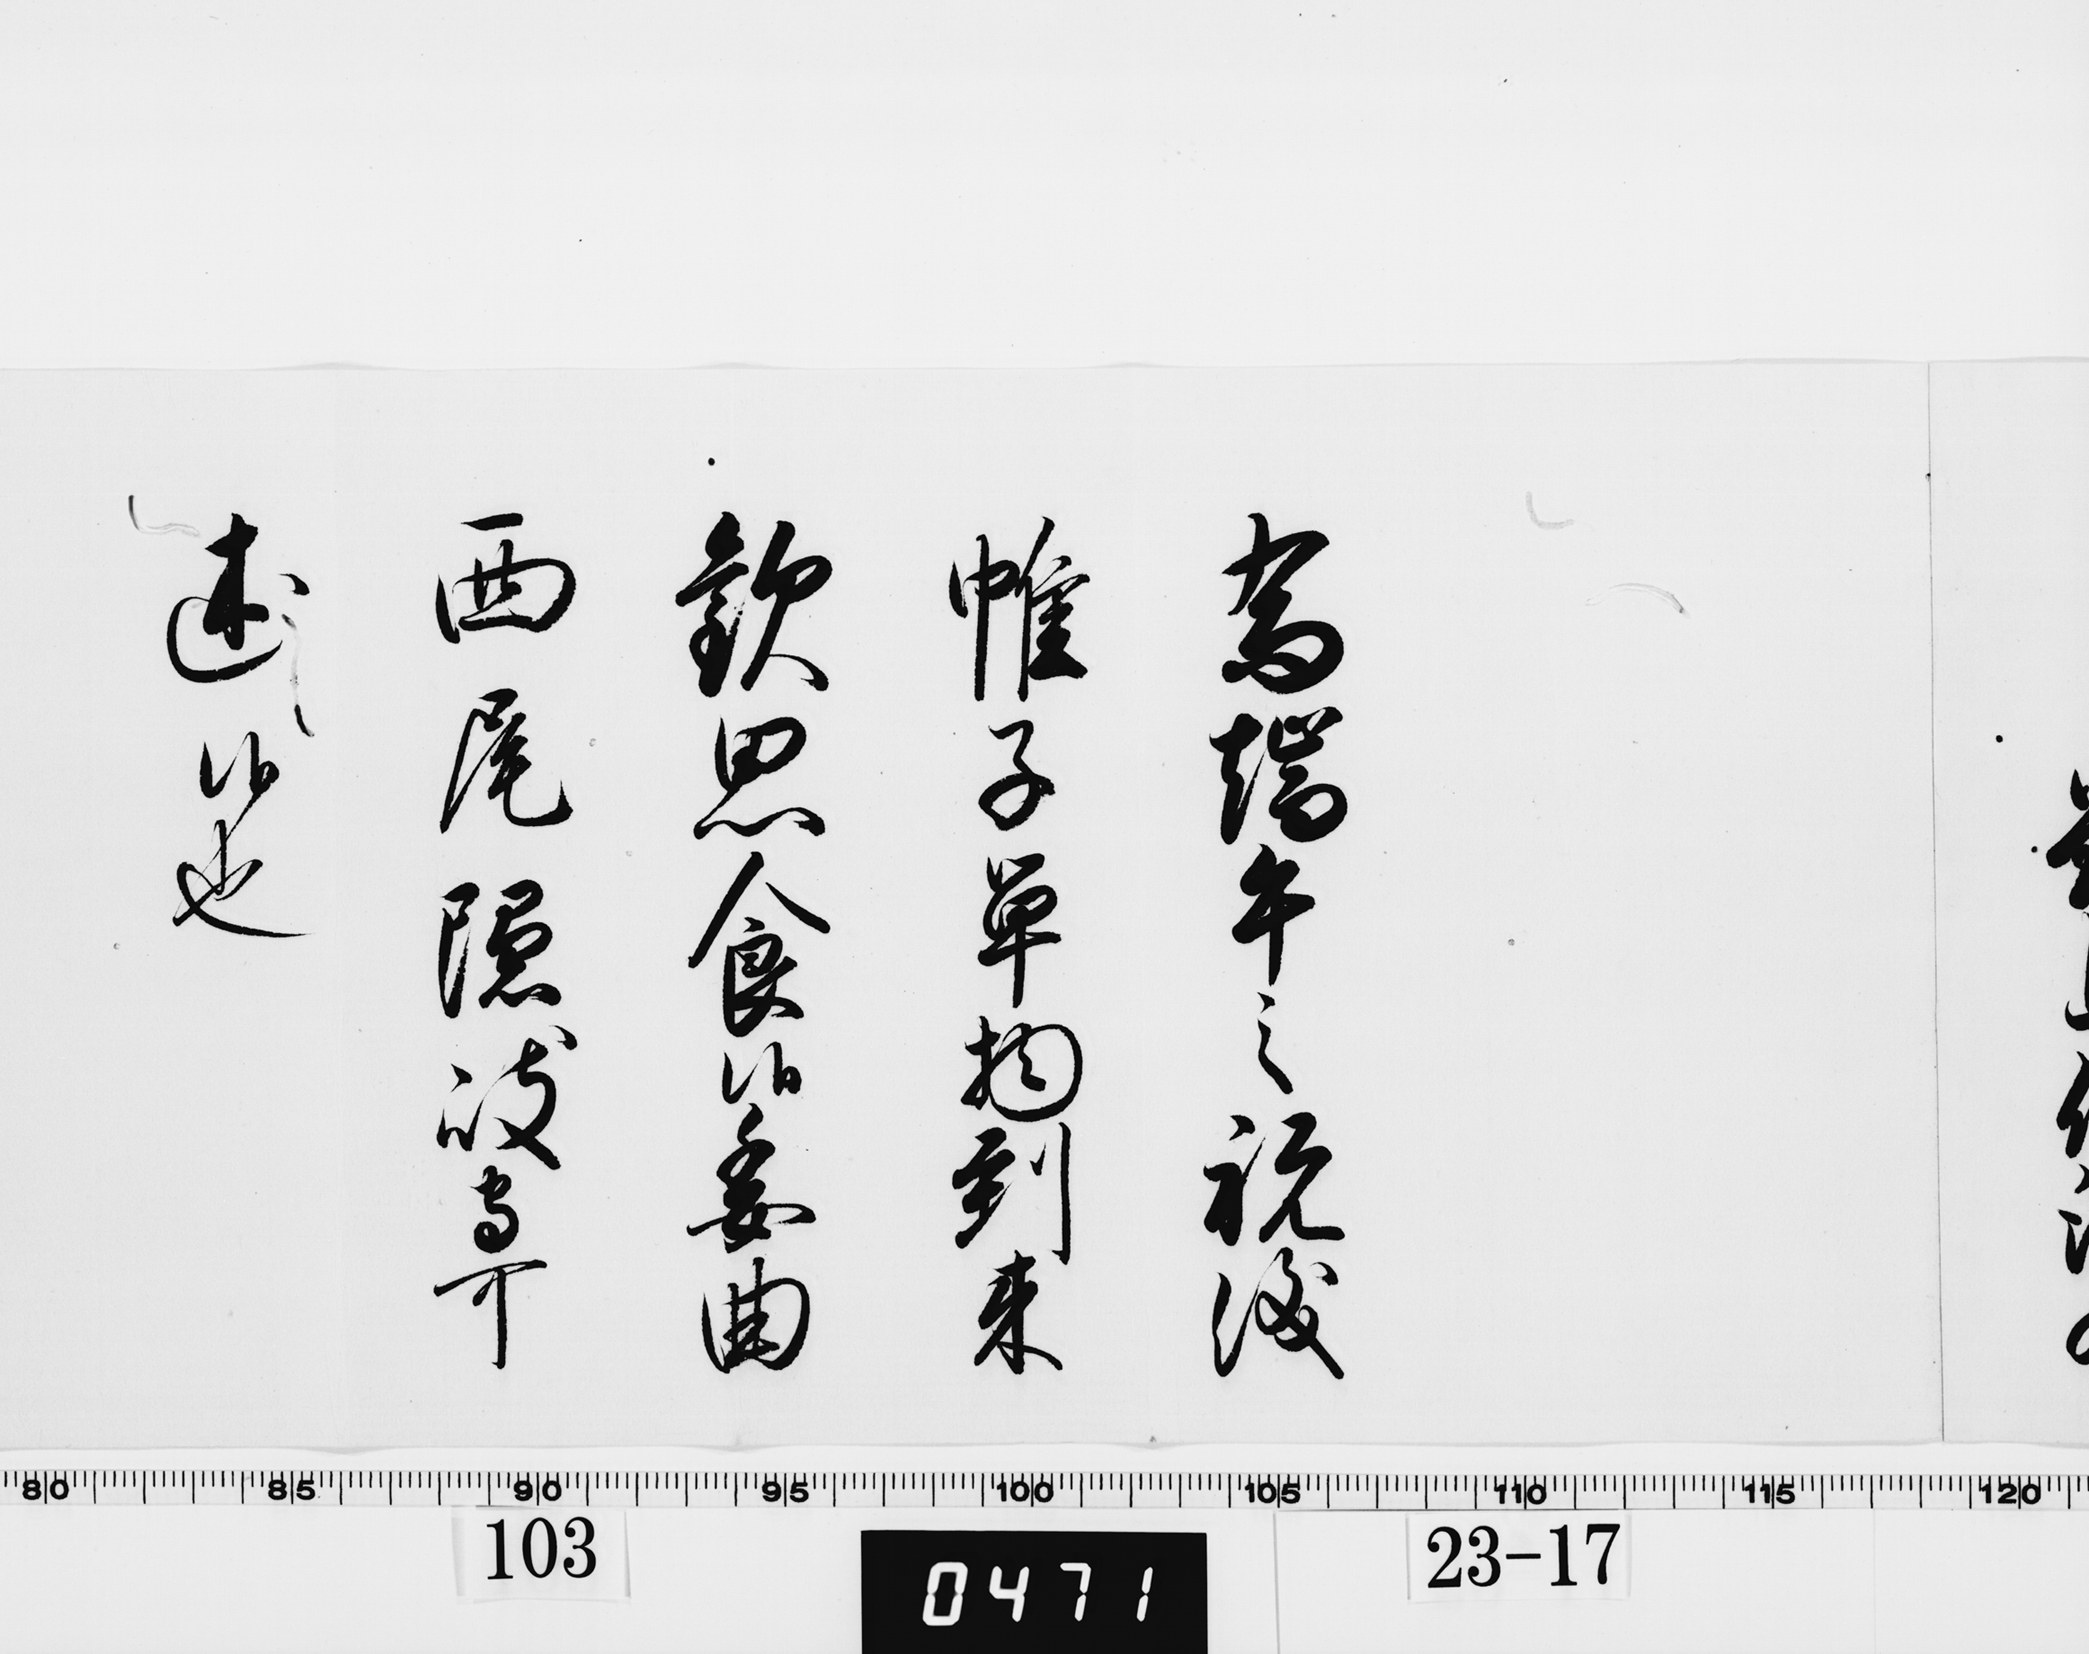 為端午之祝儀
帷子単物到来
歓思食候委曲
西尾隠岐守可
述候也
80 85 90 95 100 105 110 115 120
103
0471
23-17